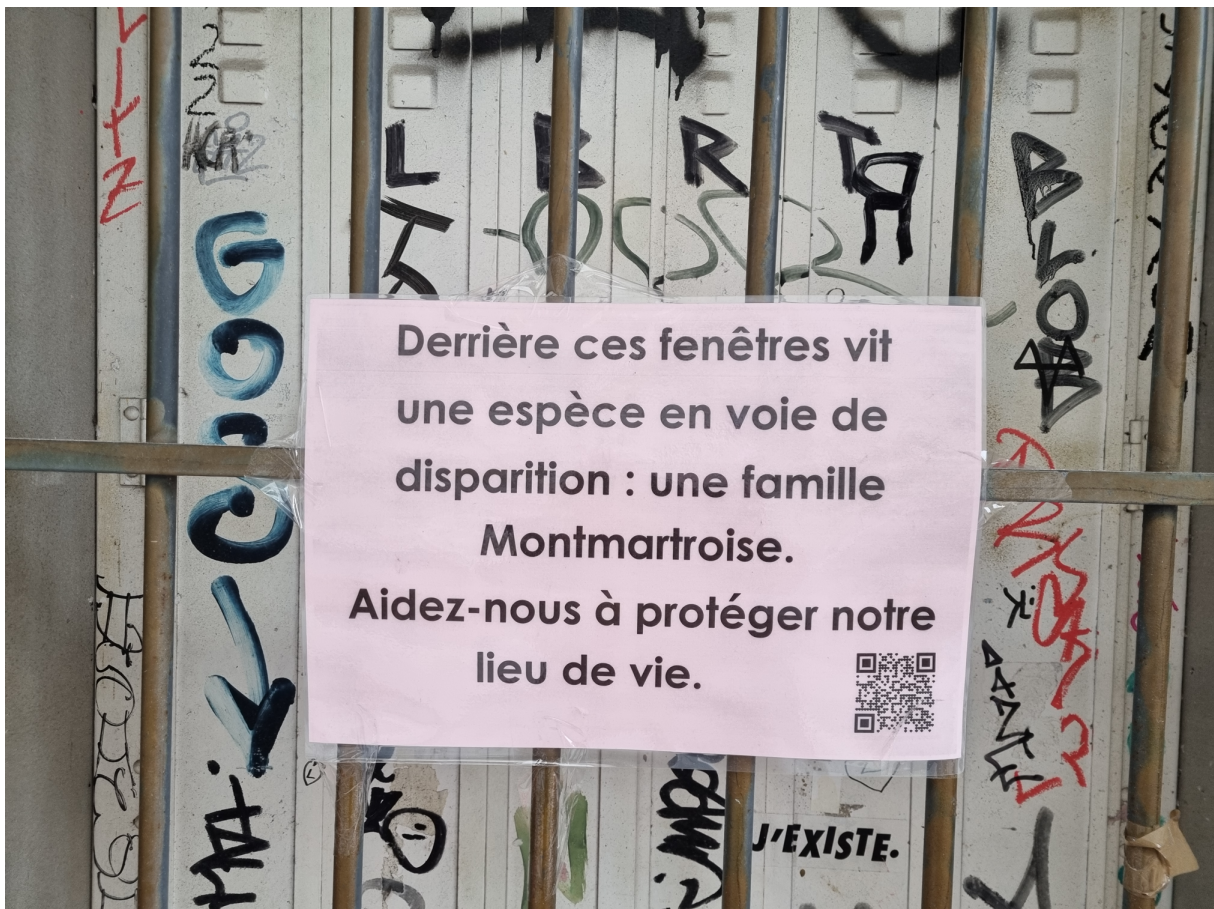 LITZ
22
L B R T
BLO
GOOC
Derrière ces fenêtres vit
une espèce en voie de
disparition : une famille
Montmartroise.
Aidez-nous à protéger notre
lieu de vie.
DANTE
J'EXISTE.